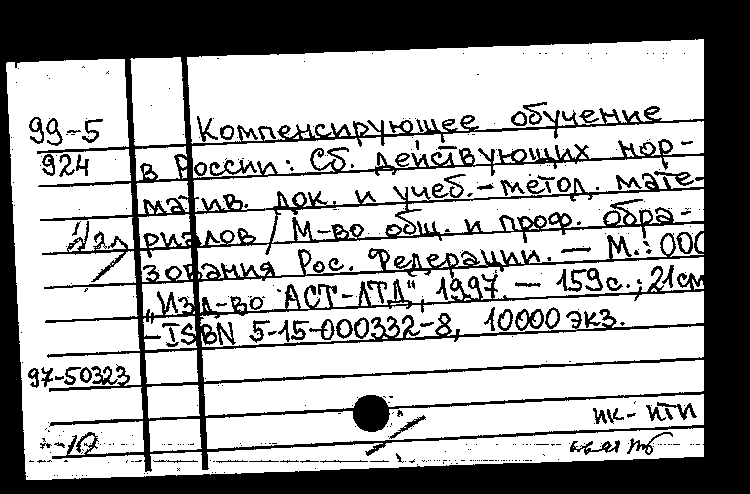 99-5 Компенсирующее обучение
924 в России: Сб. действующих нор-
матив. док. и учеб.-метод. мате-
риалов / М-во общ. и проф. обра-
зования Рос. Федерации. — М.: ООО
„Изд-во АСТ-ЛТД", 1997. — 159с.; 21см
—ISBN 5-15-000332-8, 10000 экз.
97-50323
ИК- ИТИ
-10